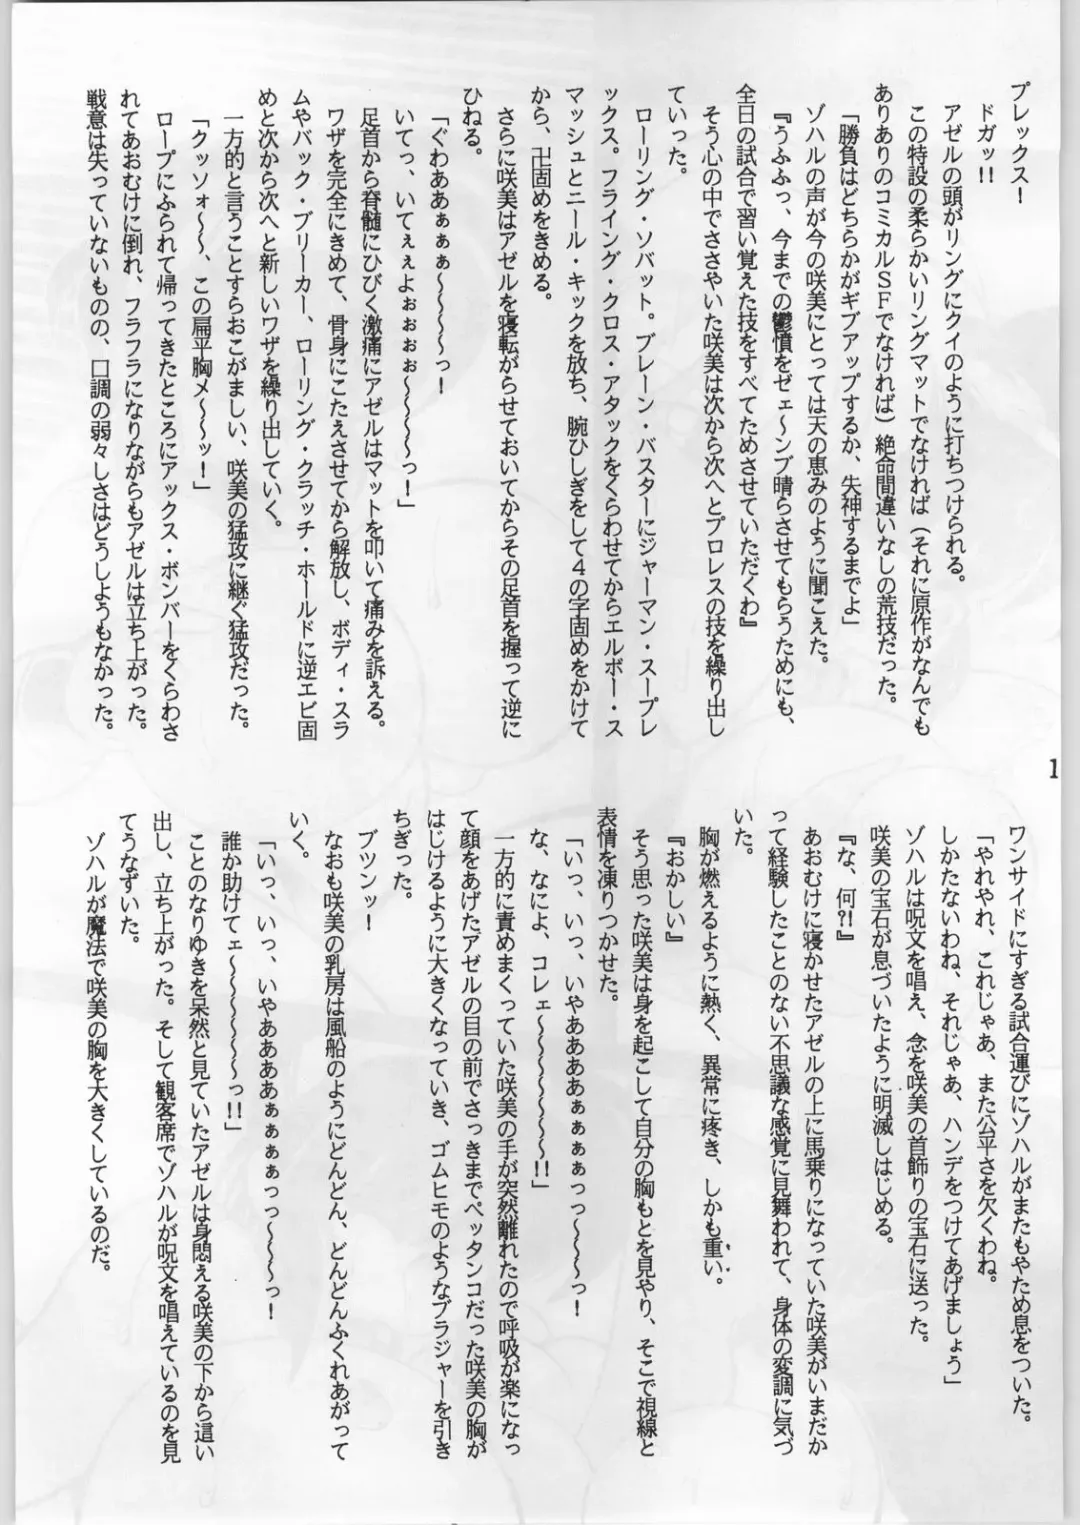 プレックス！
ドガッ!!
アゼルの頭がリングにクイのように打ちつけられる。
この特設の柔らかいリングマットでなければ（それに原作がなんでも
ありありのコミカルＳＦでなければ）絶命間違いなしの荒技だった。
「勝負はどちらかがギブアップするか、失神するまでよ」
ゾハルの声が今の咲美にとっては天の恵みのように聞こえた。
『うふふっ、今までの鬱憤をゼェ～ンブ晴らさせてもらうためにも、
全日の試合で習い覚えた技をすべてためさせていただくわ』
そう心の中でささやいた咲美は次から次へとプロレスの技を繰り出し
ていった。
ローリング・ソバット。ブレーン・バスターにジャーマン・スープレ
ックス。フライング・クロス・アタックをくらわせてからエルボー・ス
マッシュとニール・キックを放ち、腕ひしぎをして４の字固めをかけて
から、卍固めをきめる。
さらに咲美はアゼルを寝転がらせておいてからその足首を握って逆に
ひねる。
「ぐわああぁぁぁ～～～～っ！
いてっ、いてぇぇよぉぉぉぉ～～～～っ！」
足首から脊髄にひびく激痛にアゼルはマットを叩いて痛みを訴える。
ワザを完全にきめて、骨身にこたえさせてから解放し、ボディ・スラ
ムやバック・ブリーカー、ローリング・クラッチ・ホールドに逆エビ固
めと次から次へと新しいワザを繰り出していく。
一方的と言うことすらおこがましい、咲美の猛攻に継ぐ猛攻だった。
「クッソォ～～、この扁平胸メ～～～ッ！」
ロープにふられて帰ってきたところにアックス・ボンバーをくらわさ
れてあおむけに倒れ、フラフラになりながらもアゼルは立ち上がった。
戦意は失っていないものの、口調の弱々しさはどうしようもなかった。
1
ワンサイドにすぎる試合運びにゾハルがまたもやため息をついた。
「やれやれ、これじゃあ、また公平さを欠くわね。
しかたないわね、それじゃあ、ハンデをつけてあげましょう」
ゾハルは呪文を唱え、念を咲美の首飾りの宝石に送った。
咲美の宝石が息づいたように明滅しはじめる。
『な、何?!』
あおむけに寝かせたアゼルの上に馬乗りになっていた咲美がいまだか
って経験したことのない不思議な感覚に見舞われて、身体の変調に気づ
いた。
胸が燃えるように熱く、異常に疼き、しかも重い。
『おかしい』
そう思った咲美は身を起こして自分の胸もとを見やり、そこで視線と
表情を凍りつかせた。
「いっ、いっ、いやああああぁぁぁぁっっ～～～～っ！
な、なによ、コレェ～～～～～～～～!!」
一方的に責めまくっていた咲美の手が突然離れたので呼吸が楽になっ
て顔をあげたアゼルの目の前でさっきまでペッタンコだった咲美の胸が
はじけるように大きくなっていき、ゴムヒモのようなブラジャーを引き
ちぎった。
ブツンッ！
なおも咲美の乳房は風船のようにどんどん、どんどんふくれあがって
いく。
「いっ、いっ、いやああああぁぁぁぁっっ～～～～っ！
誰か助けてェ～～～～～～～っ!!」
ことのなりゆきを呆然と見ていたアゼルは身悶える咲美の下から這い
出し、立ち上がった。そして観客席でゾハルが呪文を唱えているのを見
てうなずいた。
ゾハルが魔法で咲美の胸を大きくしているのだ。